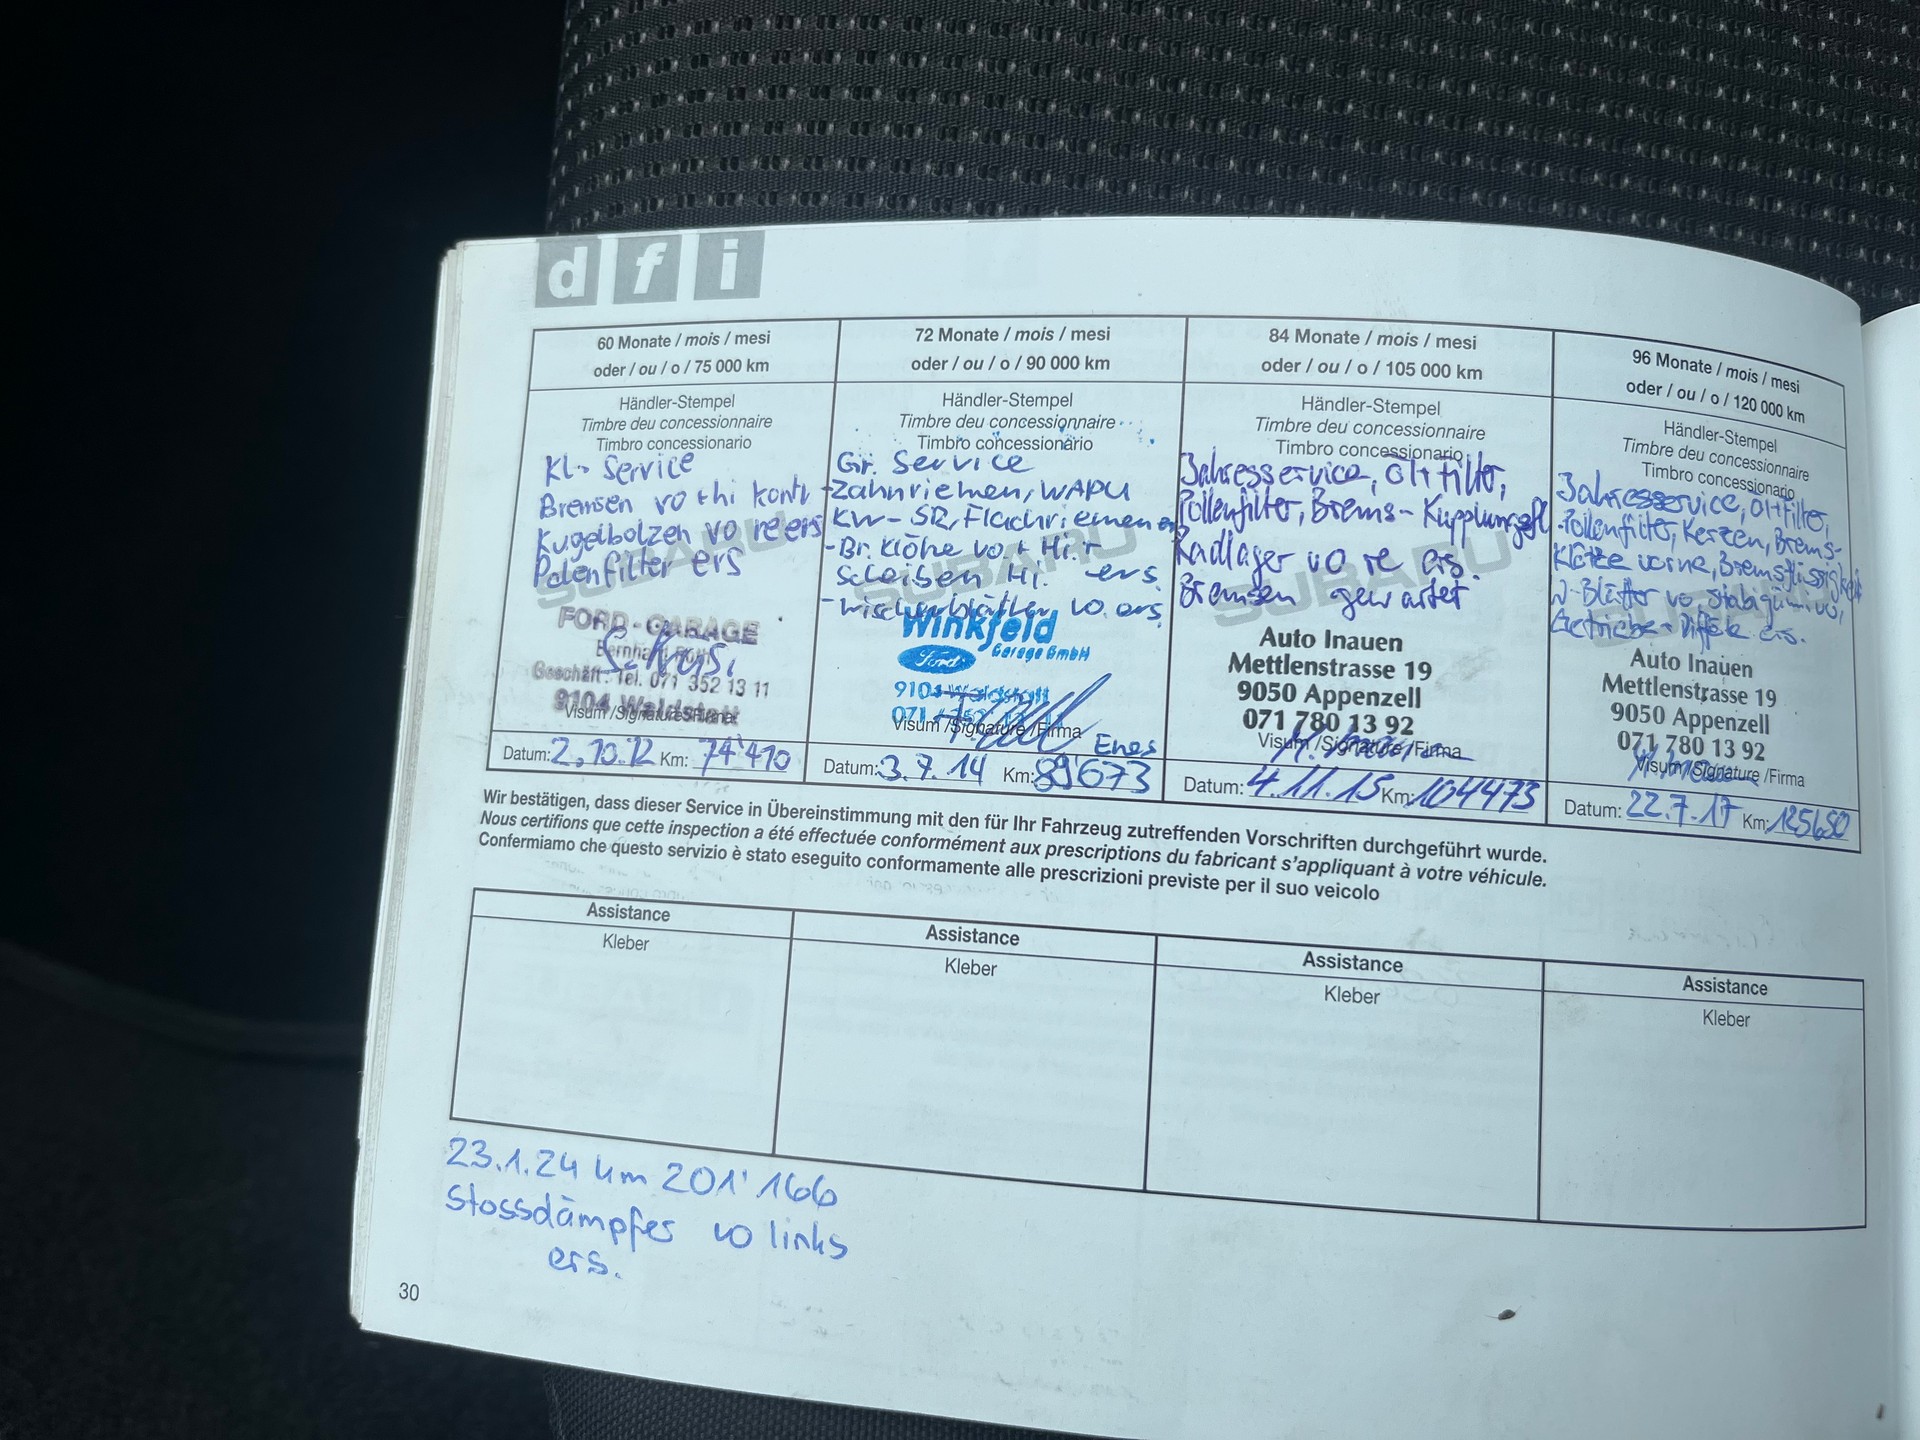 d f i
60 Monate / mois / mesi
oder / ou / o / 75 000 km
Händler-Stempel
Timbre deu concessionnaire
Timbro concessionario
SUBARU
Kl. Service
Bremsen vo + hi kontr
Kugelbolzen vo re ers
Polenfilter ers
FORD-GARAGE
Geschäft: Tel. 071 352 13 11
9104 Waldstatt
Visum /Signature/Firma
Datum: 2.10.12 Km: 74'410
72 Monate / mois / mesi
oder / ou / o / 90 000 km
Händler-Stempel
Timbre deu concessionnaire
Timbro concessionario
SUBARU
Gr. Service
-Zahnriemen, WAPU
KW-SR, Flachriemen
-Br. Klöhe vo. + Hi. +
Scheiben Hi. ers.
-wischerblätter vo. ers.
Winkfeld
Ford
Garage GmbH
9104 Waldstatt
071
Visum /Signature /Firma
Enes
Datum: 3.7.14 Km: 89'673
84 Monate / mois / mesi
oder / ou / o / 105 000 km
Händler-Stempel
Timbre deu concessionnaire
Timbro concessionario
SUBARU
Jahresservice, Öl+Filter,
Pollenfilter, Brems-Kupplungsfl
Radlager vo re ers.
Bremsen gewartet
Auto Inauen
Mettlenstrasse 19
9050 Appenzell
071 780 13 92
Visum /Signature /Firma
Datum: 4.11.15 Km: 104473
96 Monate / mois / mesi
oder / ou / o / 120 000 km
Händler-Stempel
Timbre deu concessionnaire
Timbro concessionario
SUBARU
Jahresservice, Öl+Filter,
Pollenfilter, Kerzen, Brems-
Klötze vorne, Bremsflüssigkeit
W-Blätter vo, Stabigummi vo,
Getriebe + Diff. ers.
Auto Inauen
Mettlenstrasse 19
9050 Appenzell
071 780 13 92
Visum /Signature /Firma
Datum: 22.7.17 Km: 125680
Wir bestätigen, dass dieser Service in Übereinstimmung mit den für Ihr Fahrzeug zutreffenden Vorschriften durchgeführt wurde.
Nous certifions que cette inspection a été effectuée conformément aux prescriptions du fabricant s'appliquant à votre véhicule.
Confermiamo che questo servizio è stato eseguito conformamente alle prescrizioni previste per il suo veicolo
Assistance
Kleber
Assistance
Kleber
Assistance
Kleber
Assistance
Kleber
23.1.24 km 201'166
Stossdämpfer vo links
ers.
30